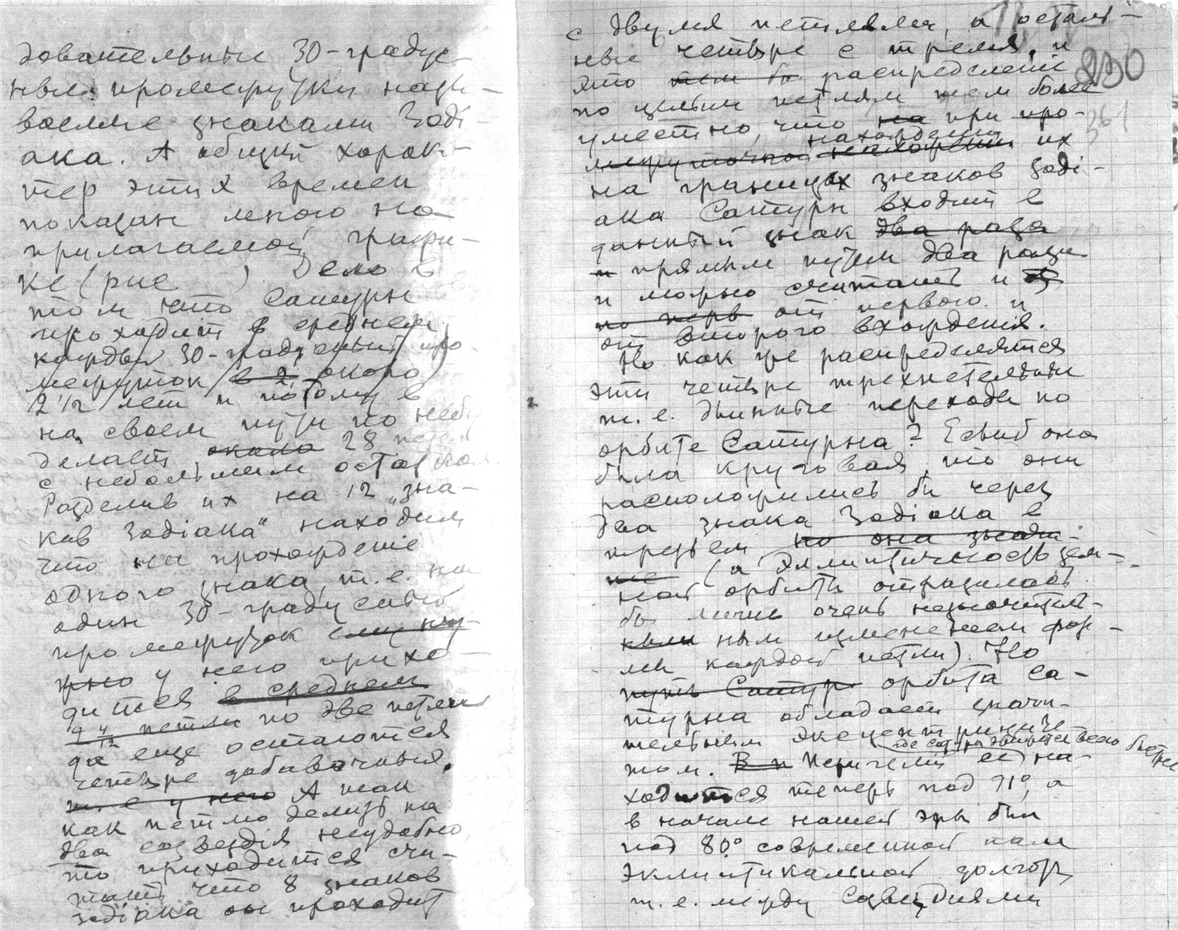 довательные 30-градус-
ные промежутки назы-
ваемые знаками Зоді-
ака. А общий харак-
тер этих времен
показан мною на
прилагаемой графи-
ке (рис ). Дело в
том что Сатурн
проходит в среднем
каждый 30-градусный про-
межуток в 2 около
2 1/2 лет и потому в
на своем пути по небу
делает около 28 петель
с небольшим остатком.
Разделив их на 12 „зна-
ков Зодіака" находим
что на прохожденіе
одного знака, т.е. на
один 30-градусный
промежуток
у него прихо-
дится в среднем
2 4/12 петли по две петли
да еще остаются
четыре добавочныя.
т.е у него А так
как петлю делить на
два созвездія неудобно,
то приходится счи-
тать что 8 знаков
Зодіака он проходит
с двумя петлями, а осталь-
ные четыре с тремя, и
это распределение
по целым петлям тем более
уместно, что на при про-
находении
межуточном нахождении их
на границах знаков Зоді-
ака Сатурн входит в
данный знак два раза
и прямым путем два раза
и можно считать и
по перв от первого и
от второго вхождения.
Но как же распределятся
эти четыре трехпетельные
т.е. длинные переходы по
орбите Сатурна? Еслиб она
была круговая, то они
расположились бы через
два знака Зодіака в
третьем но она знача-
(а эллиптичность зем-
ной орбиты отразилась
бы лишь очень незначитель-
ным изменением фор-
мы каждой петли). Но
путь Сатур орбита Са-
турна обладает значи-
тельным эксцентриците
том. В п Перигелий ее на-
где Сатурн движется всего быстрее
ходится теперь под 91°, а
в начале нашей эры был
под 80° современной нам
эклиптикальной долготы
т.е. между Созвездиями
230
361